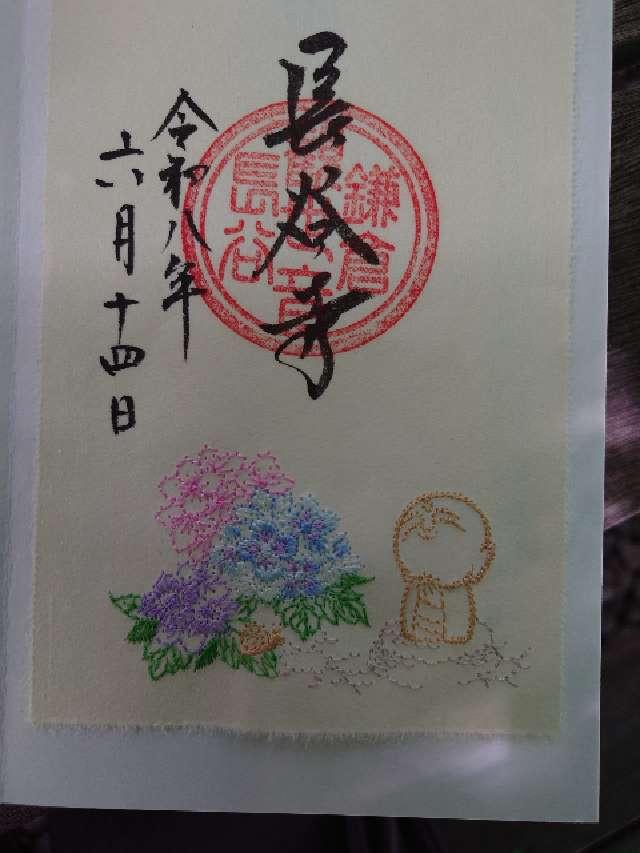 長谷寺
令和八年
六月十四日
鎌倉
観世音
長谷